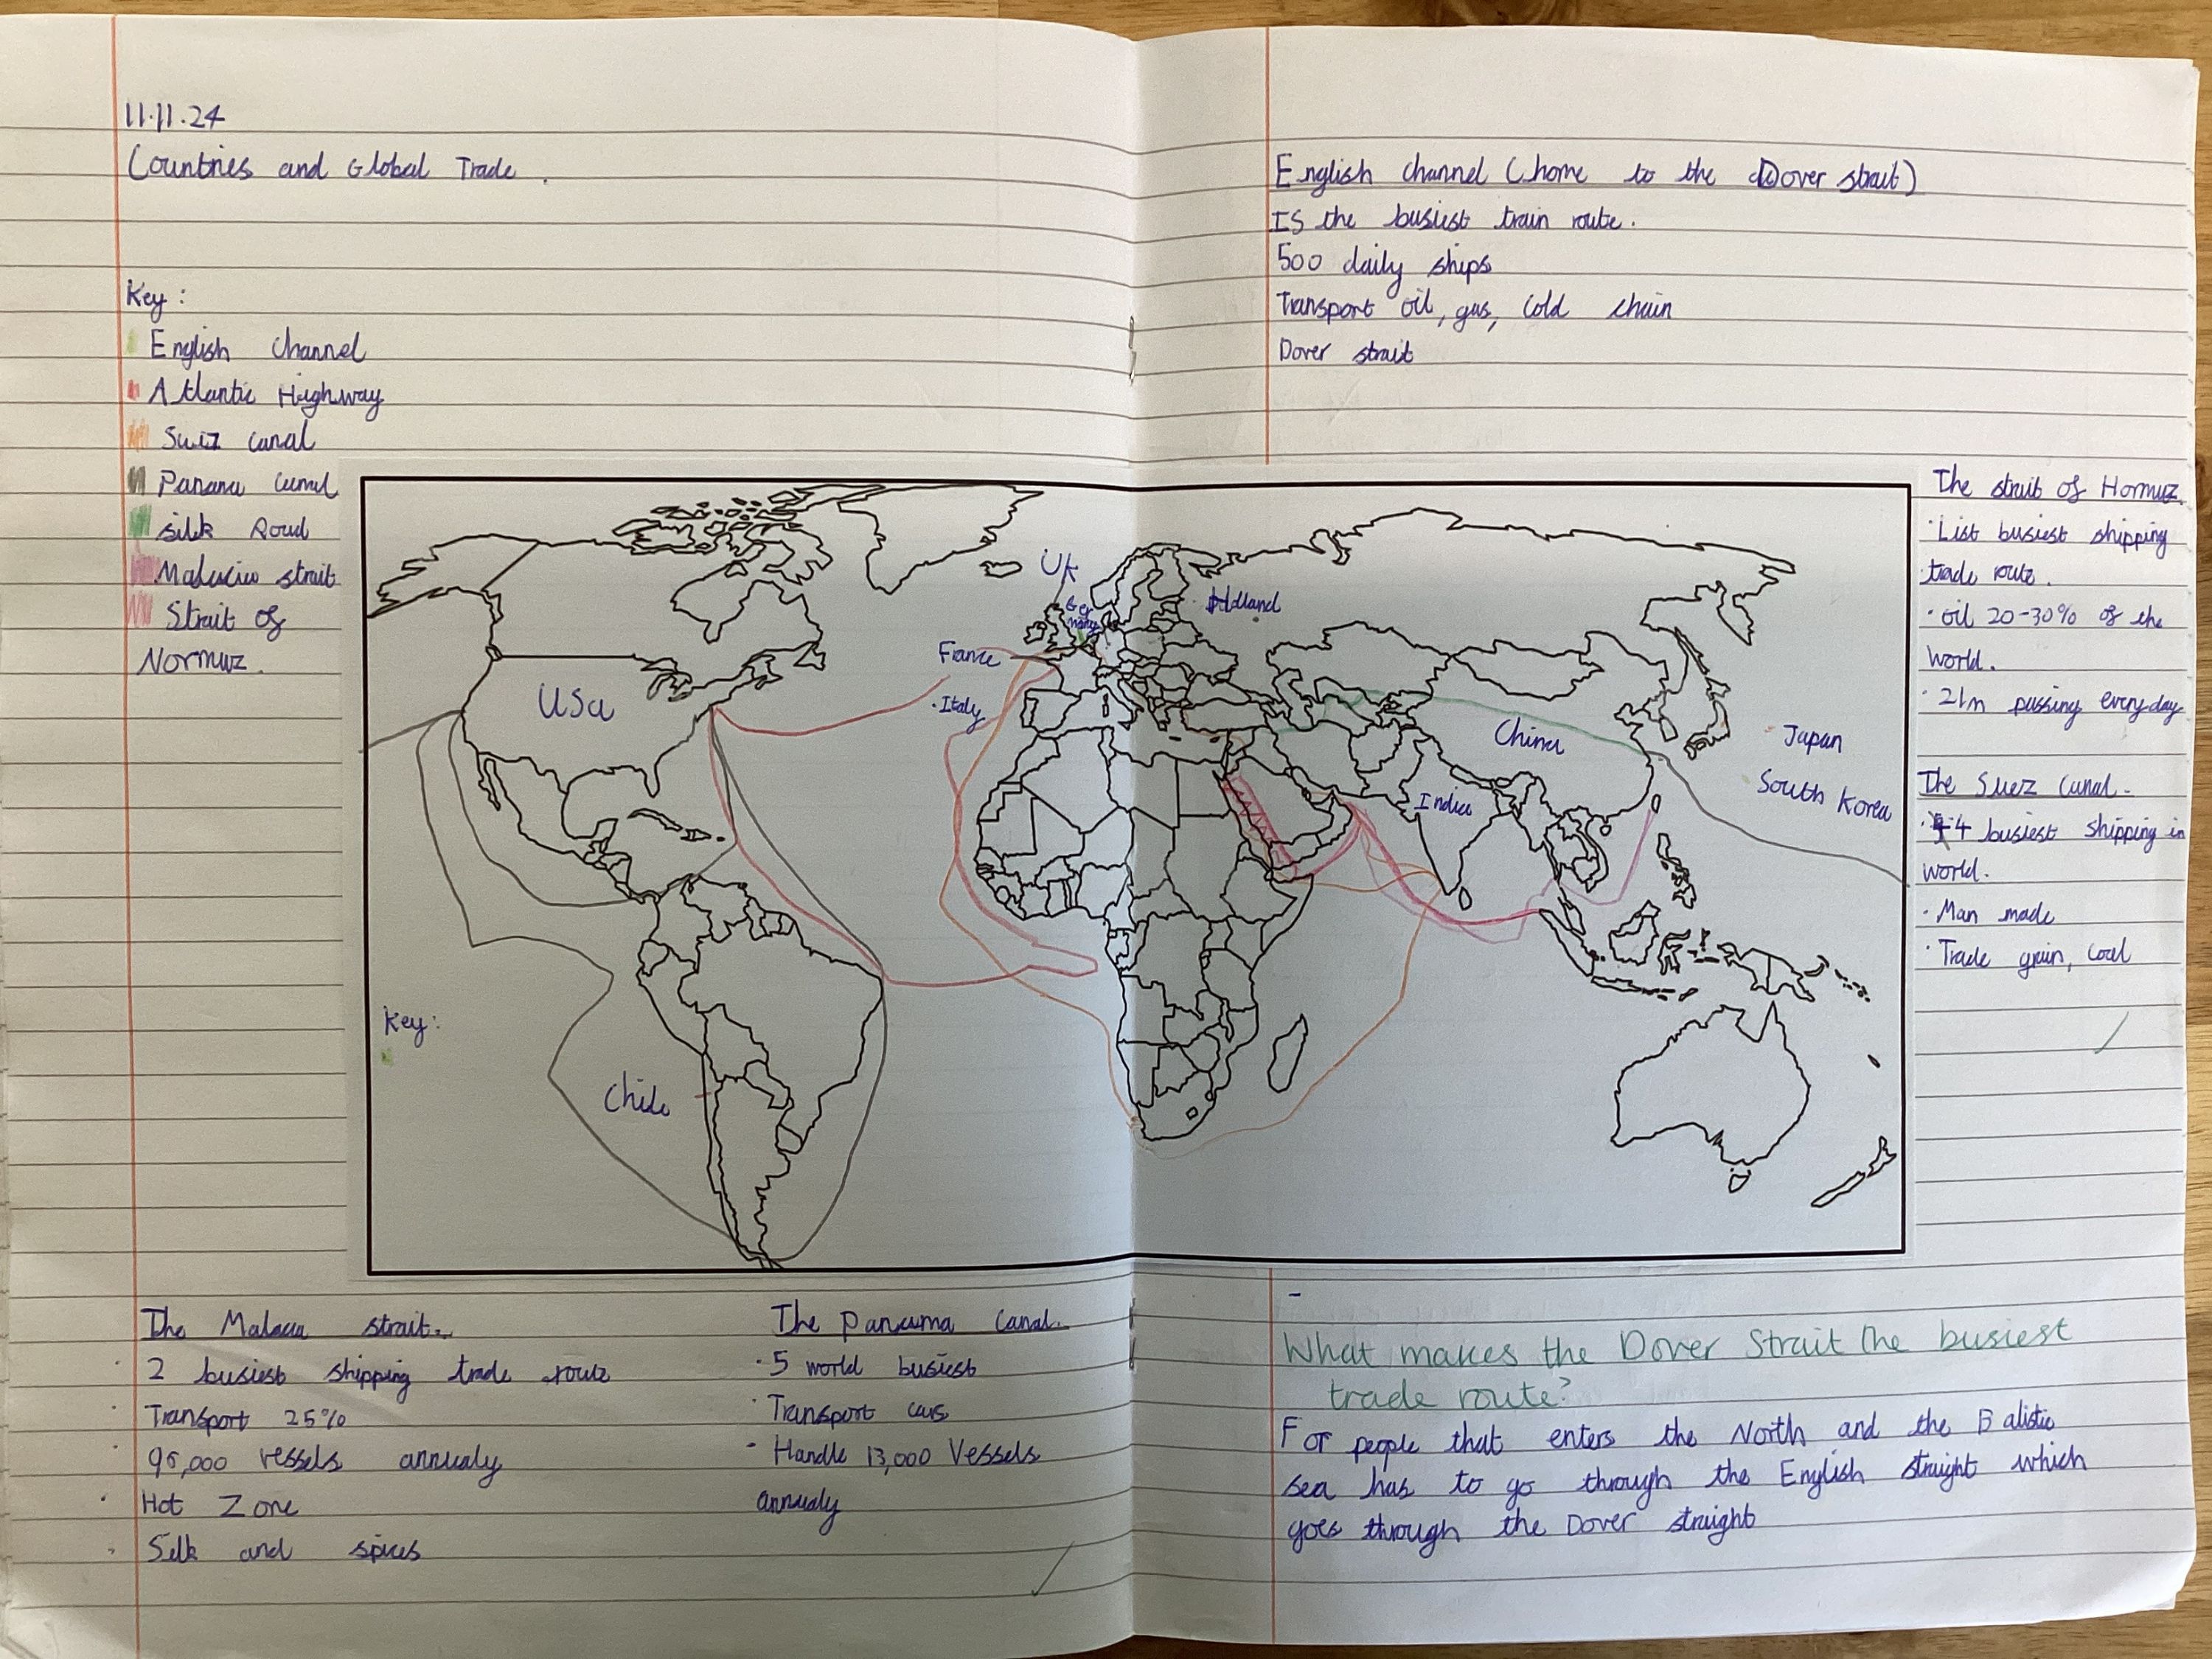 11.11.24
Countries and Global Trade.
Key:
English Channel
Atlantic Highway
Suiz canal
Panama Canal
Silk Road
strait
Strait of
Normuz.
English channel (home to the Dover strait)
Is the busiest train route.
500 daily ships
Transport oil, gas, cold chain
Dover strait
The strait of Hormuz.
· List busiest shipping
trade route.
· oil 20-30% of the
world.
· 21m passing everyday
The Suez Canal.
· 4 busiest shipping in
world.
· Man made
· Trade grain, coal
UK
Germany
Holland
France
· Italy
USA
China
India
Japan
South Korea
Chile
Key:
The Malacca strait.
· 2 busiest shipping trade route
· Transport 25%
· vessels annualy
· Hot Zone
· Silk and spices
The Panama Canal.
· 5 world busiest
· Transport cars
· Handle 13,000 Vessels
annualy
What makes the Dover Strait the busiest
trade route?
For people that enters the North and the Balistic
sea has to go through the English straight which
goes through the Dover straight